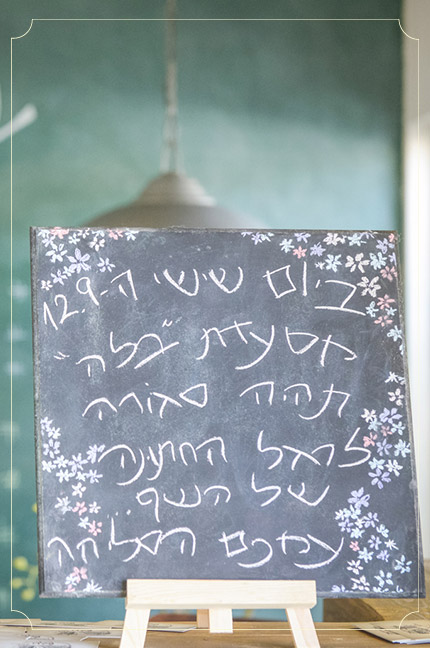 ביום שישי ה-12.9
מסעדת "בלה"
תהיה סגורה
לרגל החתונה
של השף
עמכם הסליחה